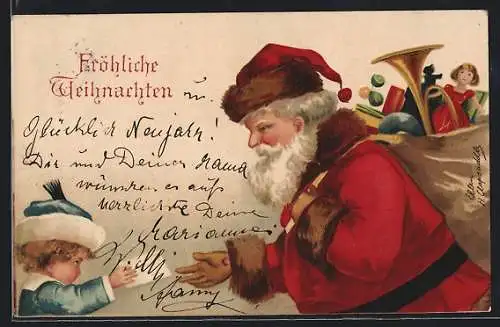 Fröhliche
Weihnachten u.
Glücklich Neujahr!
Dir und Deiner Mama
wünschen es aufs
herzlichste Deine
Marianne
Willy